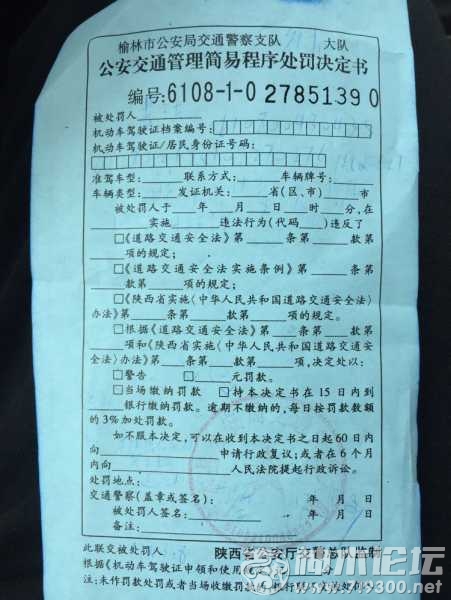 榆林市公安局交通警察支队 大队
公安交通管理简易程序处罚决定书
编号:6108-1-0 27851390
被处罚人
机动车驾驶证档案编号:
机动车驾驶证/居民身份证号码:
准驾车型: 联系方式: 车辆牌号:
车辆类型: 发证机关: 省(区、市) 市
被处罚人于 年 月 日 时 分,在
实施 违法行为(代码 )违反了
□《道路交通安全法》第 条第 款第
项的规定;
□《道路交通安全法实施条例》第 条第
款第 项的规定;
□《陕西省实施〈中华人民共和国道路交通安全法〉
办法》第 条第 款第 项的规定。
□根据《道路交通安全法》第 条第 款第
项和《陕西省实施〈中华人民共和国道路交通安
全法〉办法》第 条第 款第 项,决定处以:
□警告 □ 元罚款。
□当场缴纳罚款 □持本决定书在15日内到
银行缴纳罚款。逾期不缴纳的,每日按罚款数额
的3%加处罚款。
如不服本决定,可以在收到本决定书之日起60日内
向 申请行政复议;或者在6个月
内向 人民法院提起行政诉讼。
处罚地点:
交通警察(盖章或签名): 年 月 日
被处罚人签名: 年 月 日
备注:
此联交被处罚人 陕西省公安厅交警总队监制
根据《机动车驾驶证申领和使用
注:未作罚款处罚或者当场收缴罚款的,
www.719300.net